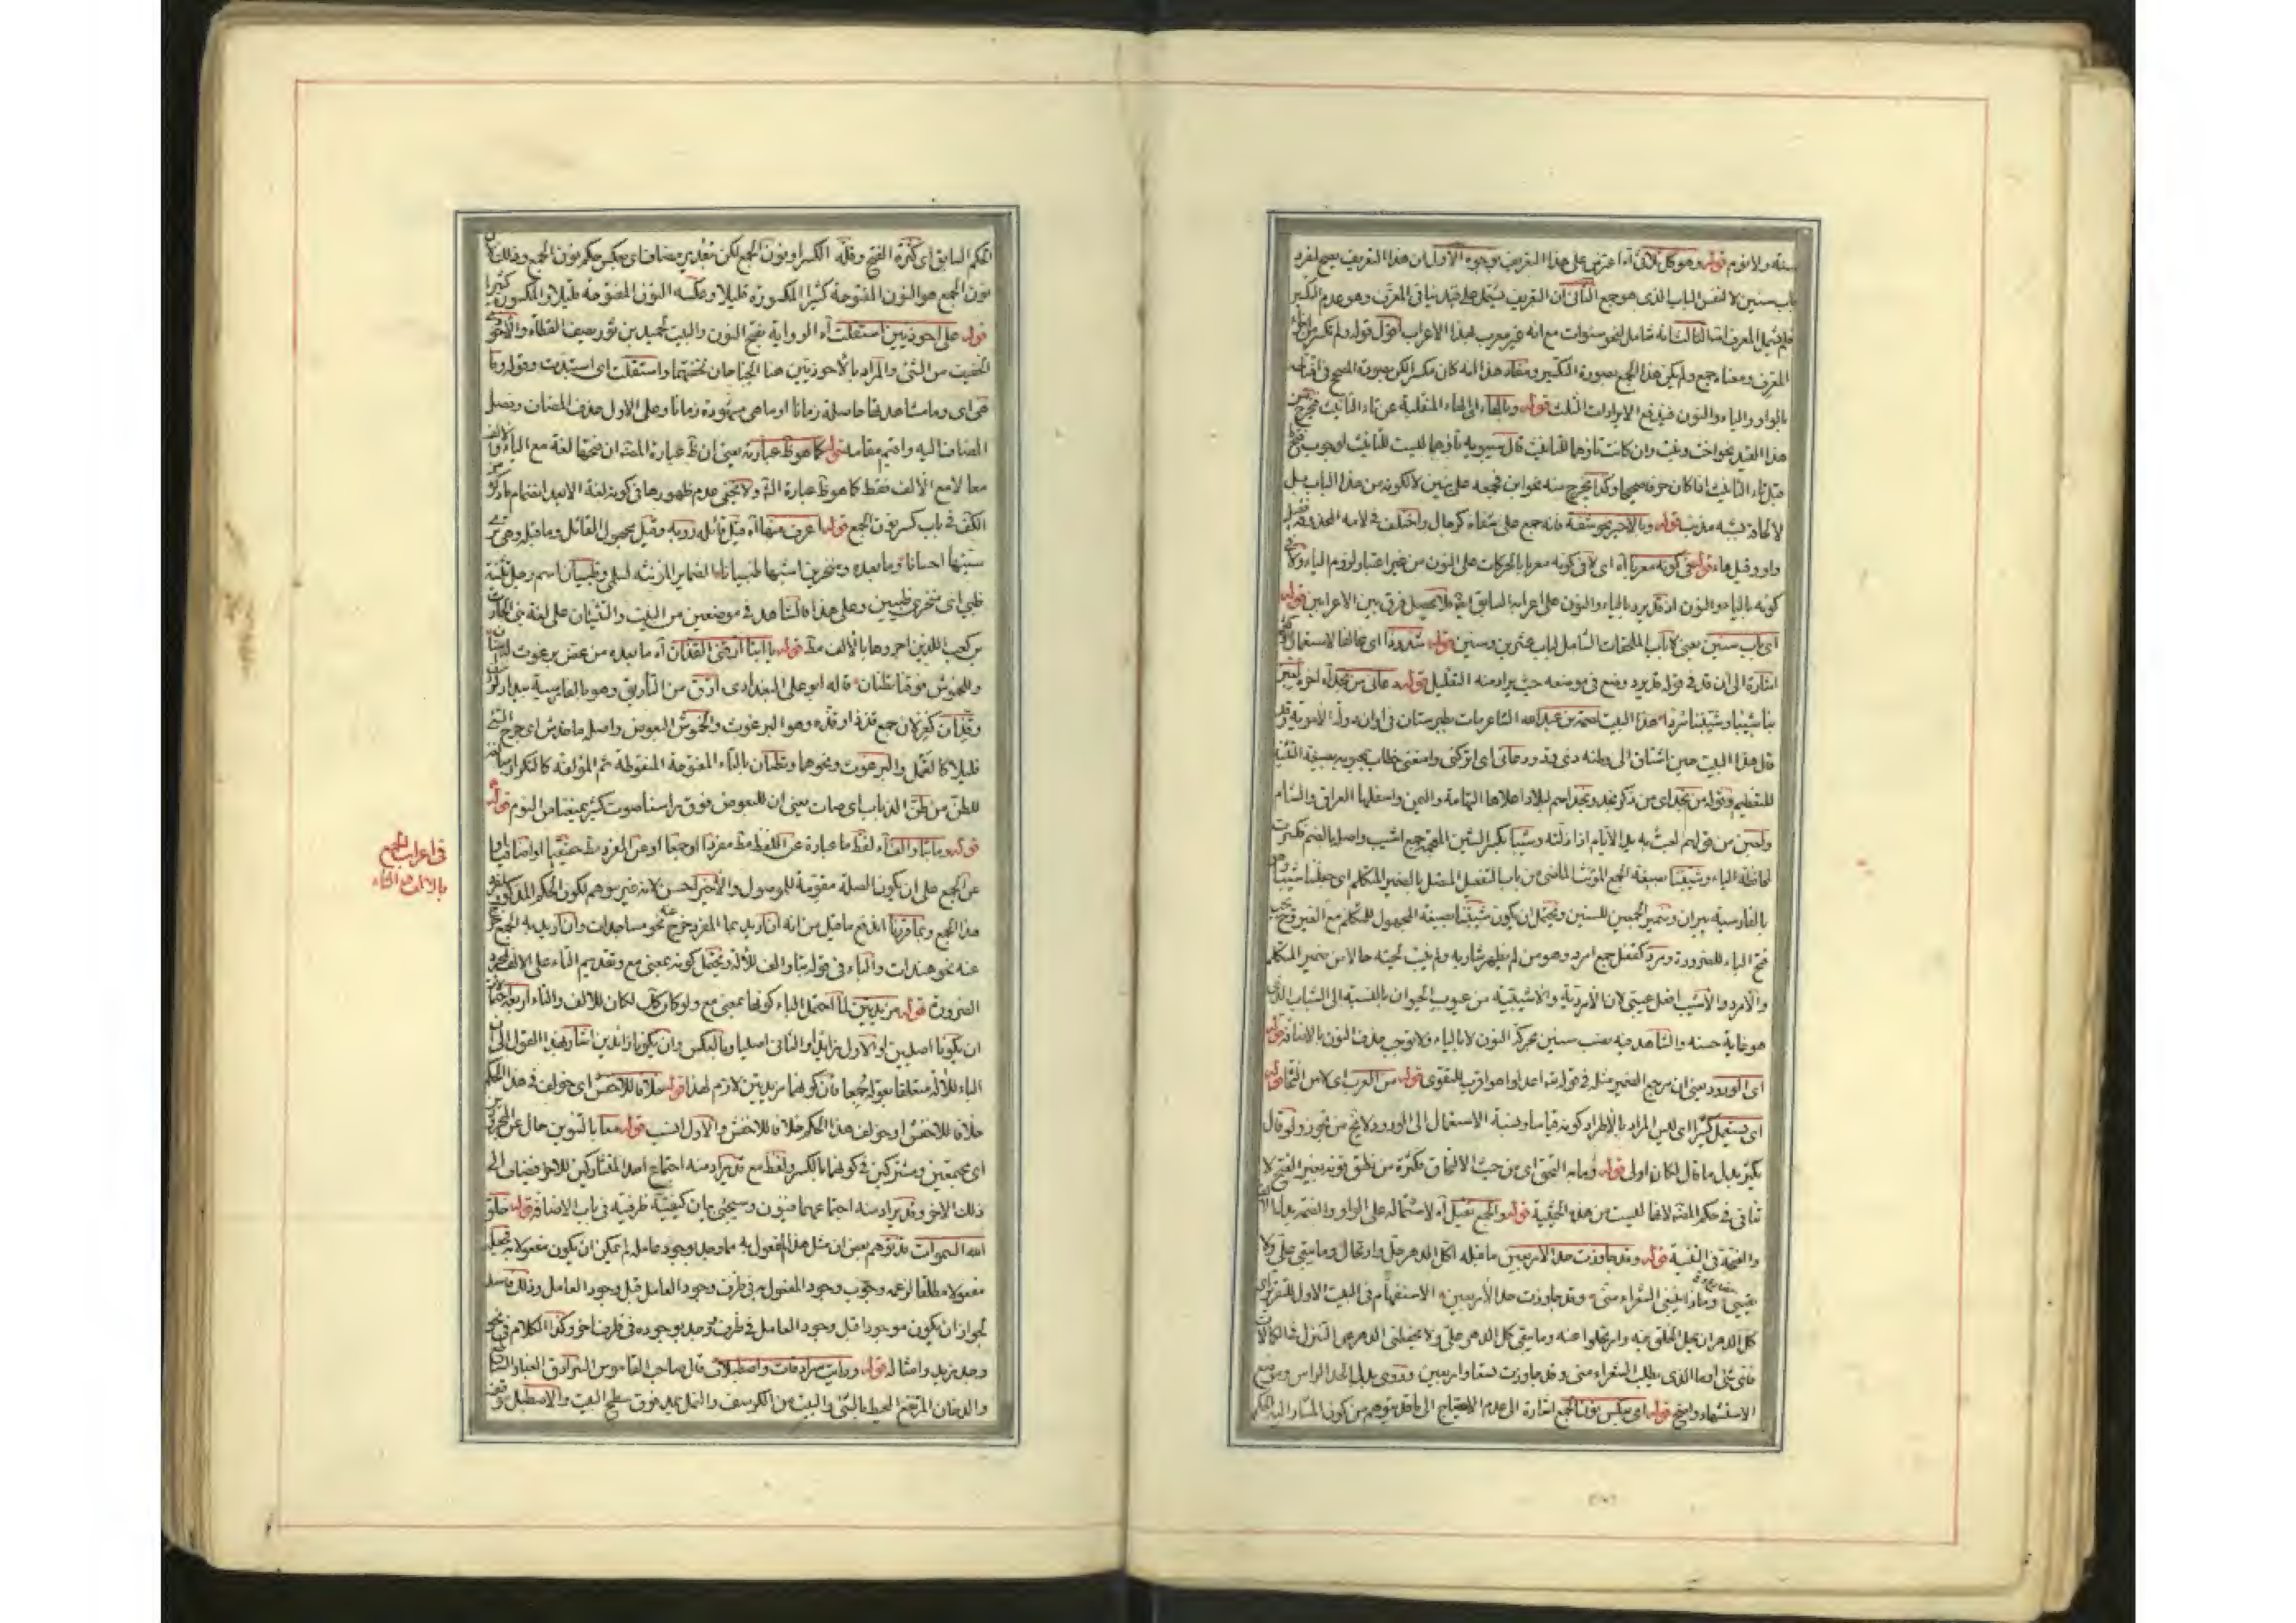 سنة ولا نوم قوله وهو كل ثلاثى آه اعترض على هذا التعريف بوجوه الاول ان هذا التعريف يصح لمفرد
باب سنين لا لنفس الباب الذى هو جمع الثانى ان التعريف يشتمل على قيد نيافى المعرف وهو عدم التكسير
الثالث انه شامل لنحو سنوات مع انه غير معرب بهذا الاعراب اقول قوله ولم تكسر من
المعرف ومعناه جمع ولم يكن هذا الجمع بصورة التكسير ومفاد هذا انه كان مكسرا لكن بصورة الصحيح فى
بالواو والياء والنون فيندفع الايرادات الثلث قوله وبالهاء اى الهاء المنقلبة عن تاء التانيث فيخرج
هذا القيد نحو اخت وبنت وان كانت تاؤهما للتانيث قال سيبويه تاؤهما ليست للتانيث لوجوب فتح
قبل تاء التانيث اذا كان حرفا صحيحا وكذا يخرج منه نحو ابن فجمعه على بنين لا لكونه من هذا الباب بل
لالحاقه بشبه مذنب قوله وبالاخير نحو شفة فانه جمع على شفاه كرجال واختلف فى لامه المحذوفة فقيل
واو وقيل هاء قوله فى كونه معربا آه اى لا فى كونه معربا بالحركات على النون من غير اعتبار لزوم الياء ولا
كونه بالياء والنون اذ قد يرد بالياء والنون على اعرابه السابق ايضا فلا يحصل فرق بين الاعرابين قوله
اى باب سنين يعنى لا باب الملحقات الشامل لباب عشرين وسنين قوله شذوذا اى مخالفا لاستعمال
اشارة الى ان قد فى قوله قد يرد وضع فى موضعه حيث يراد منه التقليل قوله دعانى من نجد آه اخره لعبن
بنا شيبا وشيبننا مردا هذا البيت لصمة بن عبدالله الشاعر مات بطبرستان فى اوان دولة الاموية وقد
قال هذا البيت حين اشتاق الى وطنه ودعانى اى اتركنى وامنعنى خطاب لمحبوبه بصيغة التثنية
للتعظيم وقوله من نجد اى من ذكر نجد ونجد اسم لبلاد اعلاها التهامة واليمن واسفلها العراق والشام
ولعبن من قولهم لعبت به يد الايام اذا ذلته وشيبا بكسر الشين المعجمة جمع اشيب واصله بالضم فكسرت
لمحافظة الياء وشيبننا صيغة الجمع المؤنث الماضى من باب التفعيل المتصل بالضمير المتكلم اى جعلننا شيبا
بالفارسية پيران وضمير لجمعين للسنين ويحتمل ان يكون شيبننا صيغة المجهول للمتكلم مع الغير
فتح الباء للضرورة ومرد كقفل جمع امرد وهو من لم يظهر شاربه ولم ينبت لحيته حالا من ضمير المتكلم
والامرد والاشيب افعل عيبى لان الامردية والاشيبية من عيوب الحيوان بالنسبة الى الشباب الذى
هو غاية حسنه والشاهد فيه نصب سنين بحركة النون لا بالياء ولا توجب حذف النون بالاضافة قوله
اى الورود يعنى ان مرجع الضمير مثله فى قوله تعالى اعدلوا هو اقرب للتقوى قوله من العرب اى لا من النحاة قوله
اى يستعمل كثيرا اى ليس المراد بالاطراد كونه قياسا ونسبة الاستعمال الى الورود لا يخ من تجوز ولو قال
يكثر بدل ما قال لكان اولى قوله وما به التحق اى من حيث الالتحاق فكثرة من نطق فونه بغير الفتح لا
تنافى فى حكم المثنى لانها ليست من هذه الحيثية قوله والجمع ثقيل آه لاشتماله على الواو والضمة بدل الالف
والفتحة فى التثنية قوله وقد جاوزت حد الاربعين ما قبله اكل الدهر حل وارتحال وما يبقى على ولا
يقينى وماذا يبتغى الشعراء منى وقد جاوزت حد الاربعين الاستفهام فى البيت الاول للتقرير
كل الدهر ان يحل الخلق فيه وارتحلوا عنه وما يبقى كل الدهر على ولا يحفظنى الدهر عن التنزل
منى شئ وما الذى يطلب الشعراء منى وقد جاوزت تسعا واربعين وروى بدل الحد الراس وموضع
الاستشهاد واضح قوله اى بعكس نون الجمع اشارة الى عدم الاحتياج الى ما قد يتوهم من كون المشار اليه
الحكم السابق اى كثرة الفتح وقلة الكسر او نون الجمع لكن بتقدير مضاف اى بعكس حكم نون الجمع وذلك لان
نون الجمع هو النون المفتوحة كثيرا المكسورة قليلا وعكسه النون المفتوحة قليلا والمكسورة كثيرا
قوله على احوذيين استقلت آه الرواية بفتح النون والبيت لحميد بن ثور يصف القطاة والاحوذى
الخفيف من الشئ والمراد بالاحوذيين هنا الجناحان لخفتهما واستقلت اى استبدت وقوله وما
هى اى وما مشاهدتها حاصلة زمانا او ما هى مشهودة زمانا وعلى الاول حذف المضاف وفصل
المضاف اليه واقيم مقامه قوله كما هو ظ عبارته يعنى ان ظ عبارة المصنف ان فتحها لغة مع الياء والالف
معا لا مع الالف فقط كما هو ظ عبارة الش ولا يخفى عدم ظهورها فى كونه لغة الا بعد انضمام ما ذكره
الكف فى باب كسر نون الجمع قوله اعرف منها آه قيل قائله روبة وقيل مجهول القائل وما قبله وهى
سبها احسانا وما بعده ومنخرين اشبها ظبيانا الضماير المؤنثة لسلمى وظبيان اسم رجل وقيل تثنية
ظبى اى منخرى ظبيين وعلى هذا فالشاهد فى موضعين من البيت والتثنيتان على لغة بنى الحارث
بن كعب الذين اجروها بالالف مط قوله يا ابتا ارقنى القذان آه ما بعده من عض برغوث له اسنان
وللخموش فوقنا تطنان قاله ابو على البغدادى ارق من التاريق وهو بالفارسية بيدار كردن
وقذان كغزلان جمع قذة او قذه وهو البرغوث والخموش البعوض واصله ما خدش اى جرح الشئ
قليلا كالقمل والبرغوث ونحوها وتطنان بالتاء المفتوحة المنقوطة ثم المؤلفة كالتكرار مبالغة
للطن من طن الذباب اى صات يعنى ان للبعوض فوق راسنا صوت كثير يمنعنا من النوم قوله
قوله وما بتا والف آه لفظ ما عبارة عن اللفظ مط مفردا او جمعا او عن المفرد مط حقيقيا او اضافيا او
عن الجمع على ان يكون الصلة مقومة للموصول والاخير احسن لانه غير موهم لكون الحكم المذكور لمفرد
هذا الجمع وبما قررنا اندفع ما قيل من انه ان اريد بما المفرد خرج عنه نحو مساجدات وان اريد به الجمع خرج
عنه نحو هندات والباء فى قوله بتا والف للالة ويحتمل كونه بمعنى مع وتقديم التاء على الالف لمجرد
الضرورة قوله مزيدتين لما احتمل الباء كونها بمعنى مع ولو كان كك لكان للالف والتاء اربعة احتمالات
ان يكونا اصليين او الاول مزيدا والثانى اصليا وبالعكس وان يكونا زائدين اشار بهذا القول الى ان
الباء للالة متعلقا بقوله جمعا فان كونهما مزيدتين لازم لهذا قوله خلافا للاخفش اى خولف فى هذا الحكم
خلافا للاخفش او خولف هذا الحكم خلافا للاخفش والاول انسب قوله معا بالتنوين حال عن الجر والنصب
اى مجتمعين ومشتركين فى كونهما بالكسر ولفظ مع قد يراد منه اجتماع احد المتشاركين للاخر فيضاف الى
ذلك الاخر وقد يراد منه اجتماعهما فينون وسيجئ بيان كيفية ظرفيته فى باب الاضافة قوله خلق
الله السموات قد توهم بعض ان مثل هذا المفعول به مما وجد بوجود عامله لم يمكن ان يكون مفعولا به فجعله
مفعولا مطلقا لزعمه وجوب وجود المفعول به فى ظرف وجود العامل قبل وجود العامل وذلك فاسد
لجواز ان يكون موجودا قبل وجود العامل فى ظرف وجد بوجوده فى ظرف اخر وكذا الكلام فى نحو
وجد زيد وامثاله قوله ورايت سرادقات واصطبلات قال صاحب القاموس السرادق الغبار الساطع
والدخان المرتفع المحيط بالشئ والبيت من الكرسف والذى يمد فوق سطح البيت والاصطبل
فى اعراب الجمع
بالالف والتاء